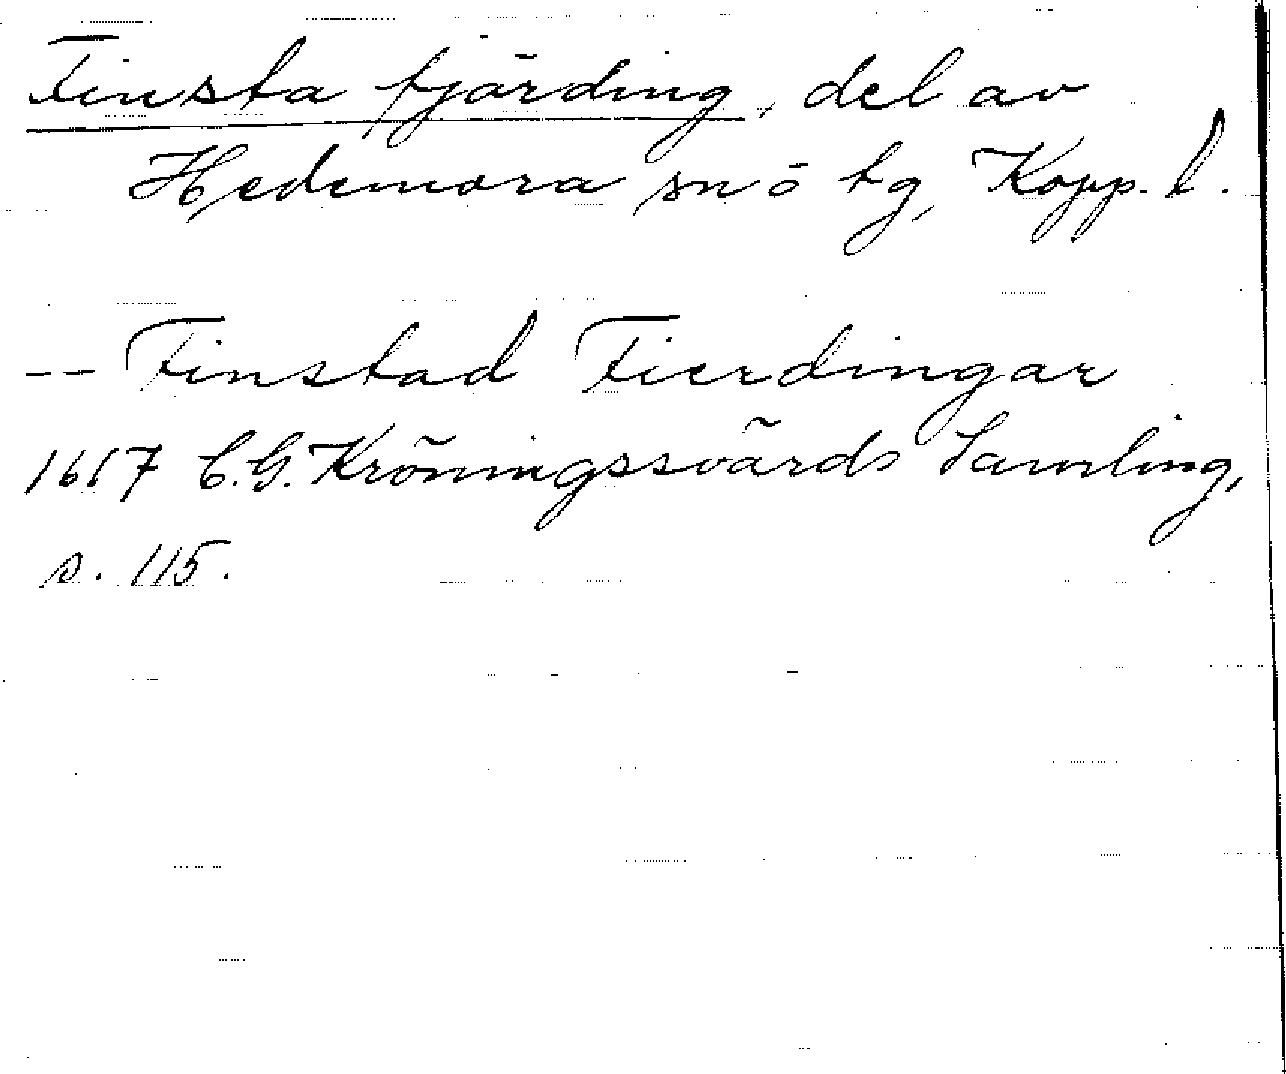 Finsta fjärding, del av
Hedemora sn o tg, Kopp. l.
-- Finstad Fierdingar
C.G. Kröningssvärds Samling,
s. 115.